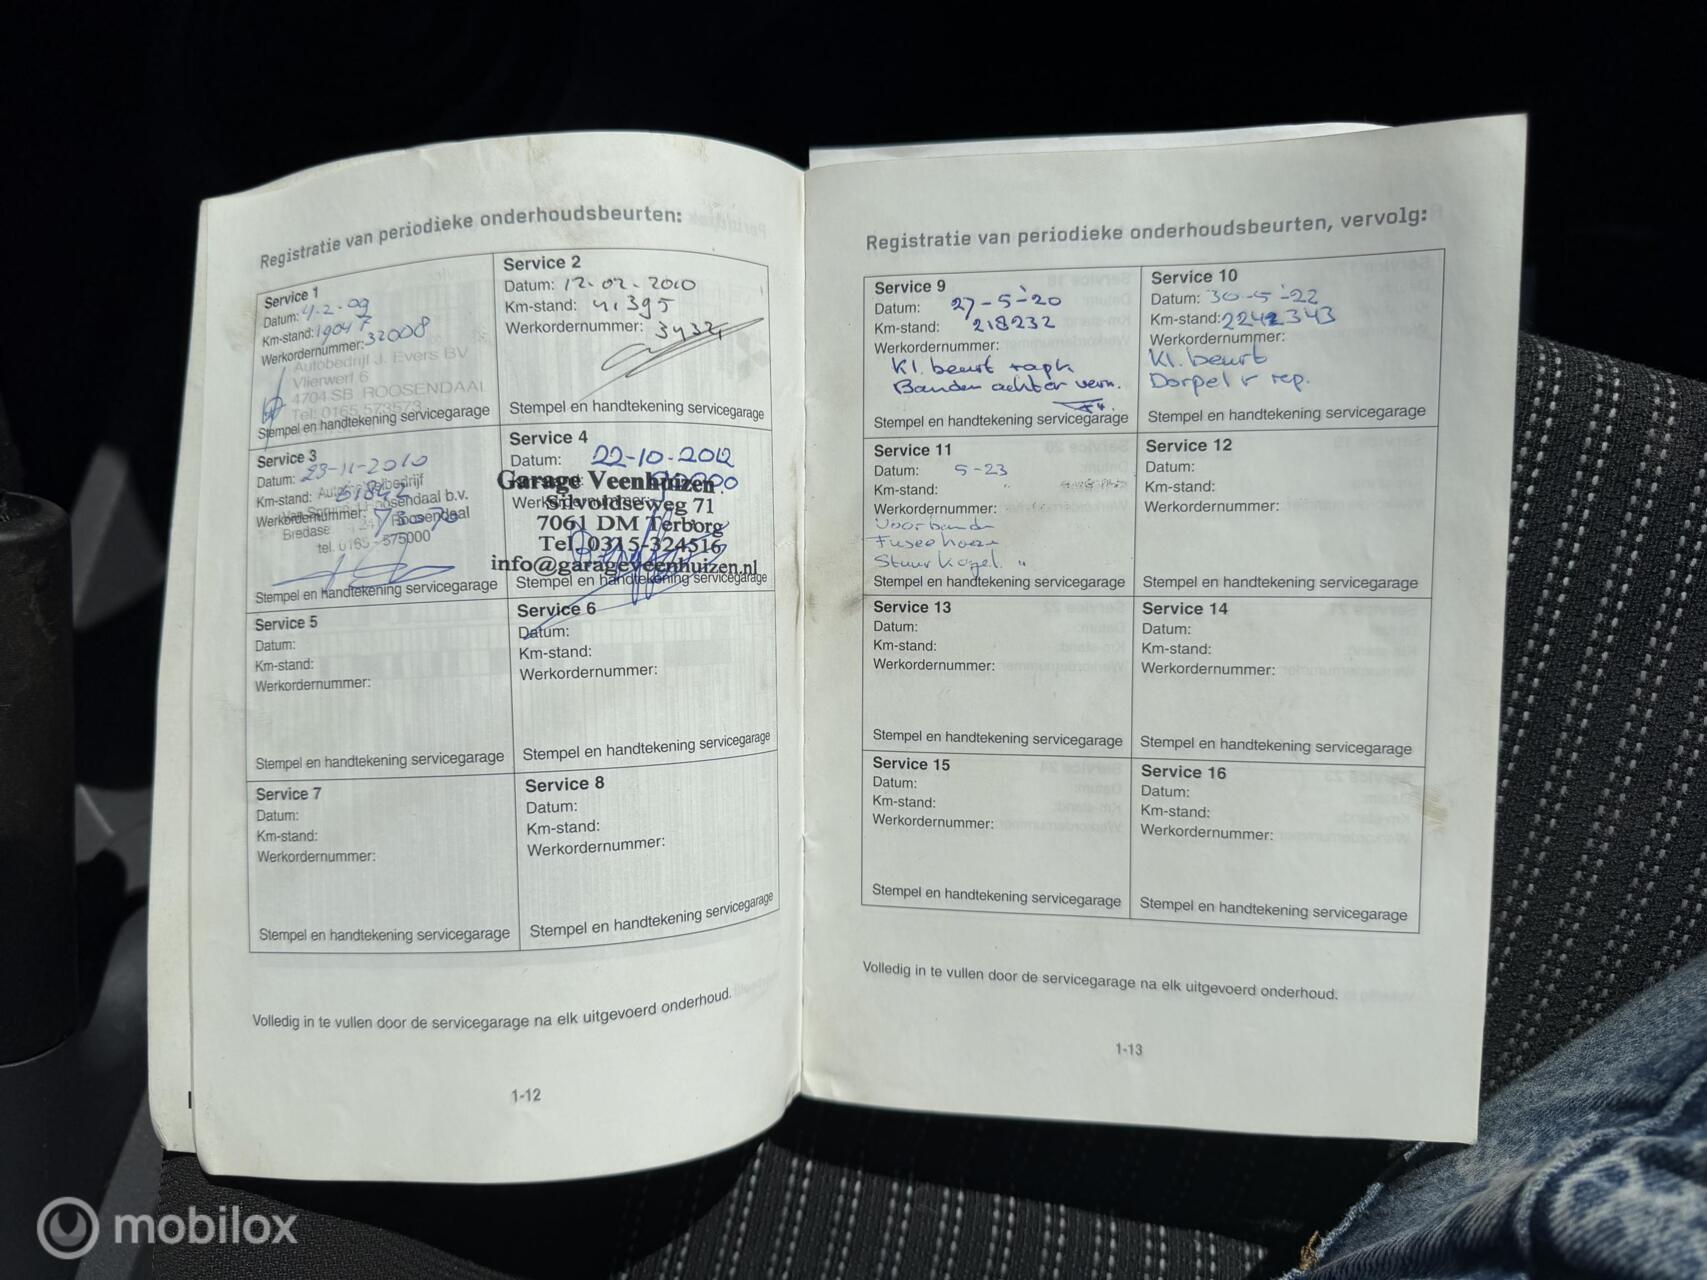 Registratie van periodieke onderhoudsbeurten:
Service 1
Datum: 4-2-09
Km-stand: 19047
Werkordernummer: 32008
Autobedrijf J. Evers BV
Vlierwerf 6
4704 SB ROOSENDAAL
Tel: 0165 573573
Stempel en handtekening servicegarage
Service 2
Datum: 12-02-2010
Km-stand: 41395
Werkordernummer: 3432
Stempel en handtekening servicegarage
Service 3
Datum: 23-11-2010
Km-stand: 51842
Werkordernummer:
Roosendaal b.v.
Bredase
Roosendaal
tel. 0165 - 575000
Stempel en handtekening servicegarage
Service 4
Datum: 22-10-2012
Garage Veenhuizen
Werkordernummer:
Silvoldseweg 71
7061 DM Terborg
Tel. 0315-324516
info@garageveenhuizen.nl
Stempel en handtekening servicegarage
Service 5
Datum:
Km-stand:
Werkordernummer:
Stempel en handtekening servicegarage
Service 6
Datum:
Km-stand:
Werkordernummer:
Stempel en handtekening servicegarage
Service 7
Datum:
Km-stand:
Werkordernummer:
Stempel en handtekening servicegarage
Service 8
Datum:
Km-stand:
Werkordernummer:
Stempel en handtekening servicegarage
Volledig in te vullen door de servicegarage na elk uitgevoerd onderhoud.
1-12
Registratie van periodieke onderhoudsbeurten, vervolg:
Service 9
Datum: 27-5-'20
Km-stand: 218232
Werkordernummer:
Kl. beurt
Banden achter vern.
Stempel en handtekening servicegarage
Service 10
Datum: 30-5-'22
Km-stand: 2242343
Werkordernummer:
Kl. beurt
Dorpel r rep.
Stempel en handtekening servicegarage
Service 11
Datum: 5-23
Km-stand:
Werkordernummer:
Voorbanden
Fuseehoezen
Stuurkogel. "
Stempel en handtekening servicegarage
Service 12
Datum:
Km-stand:
Werkordernummer:
Stempel en handtekening servicegarage
Service 13
Datum:
Km-stand:
Werkordernummer:
Stempel en handtekening servicegarage
Service 14
Datum:
Km-stand:
Werkordernummer:
Stempel en handtekening servicegarage
Service 15
Datum:
Km-stand:
Werkordernummer:
Stempel en handtekening servicegarage
Service 16
Datum:
Km-stand:
Werkordernummer:
Stempel en handtekening servicegarage
Volledig in te vullen door de servicegarage na elk uitgevoerd onderhoud.
1-13
mobilox